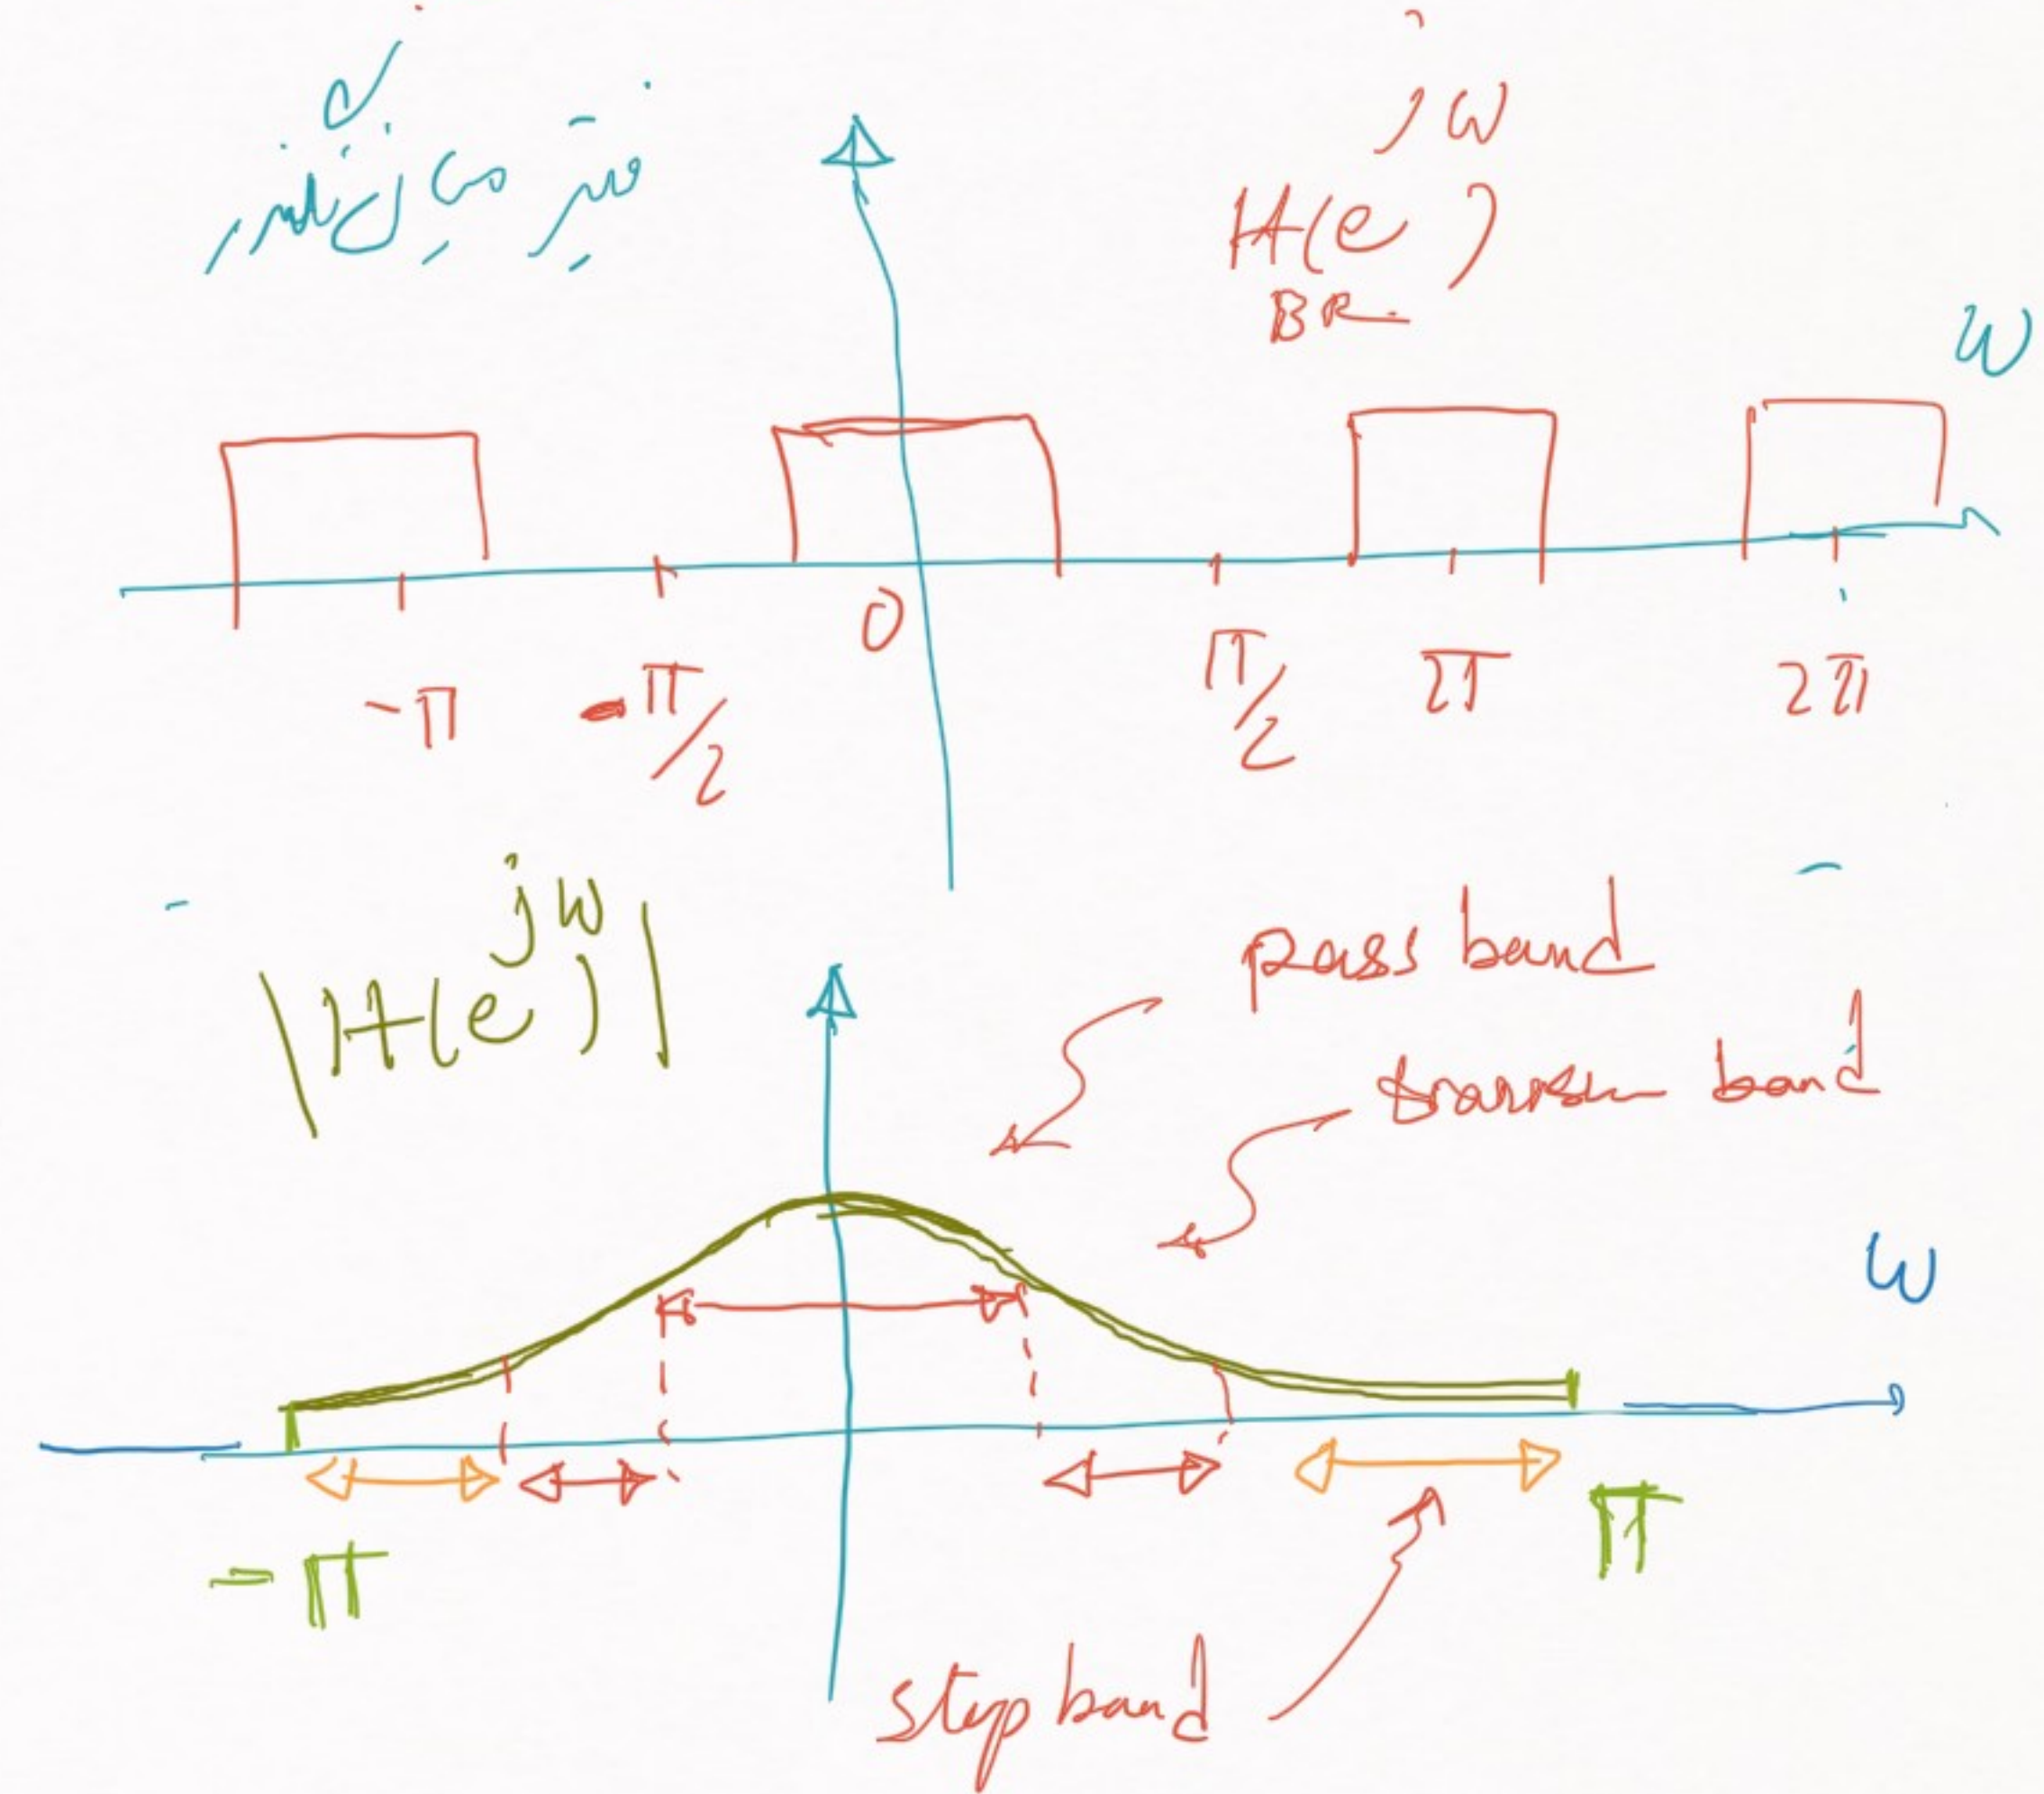 فیلتر میان نگذر
H(e^jω)
BR
ω
-π -π/2 0 π/2 π 2π
|H(e^jω)|
pass band
band
ω
-π π
stop band